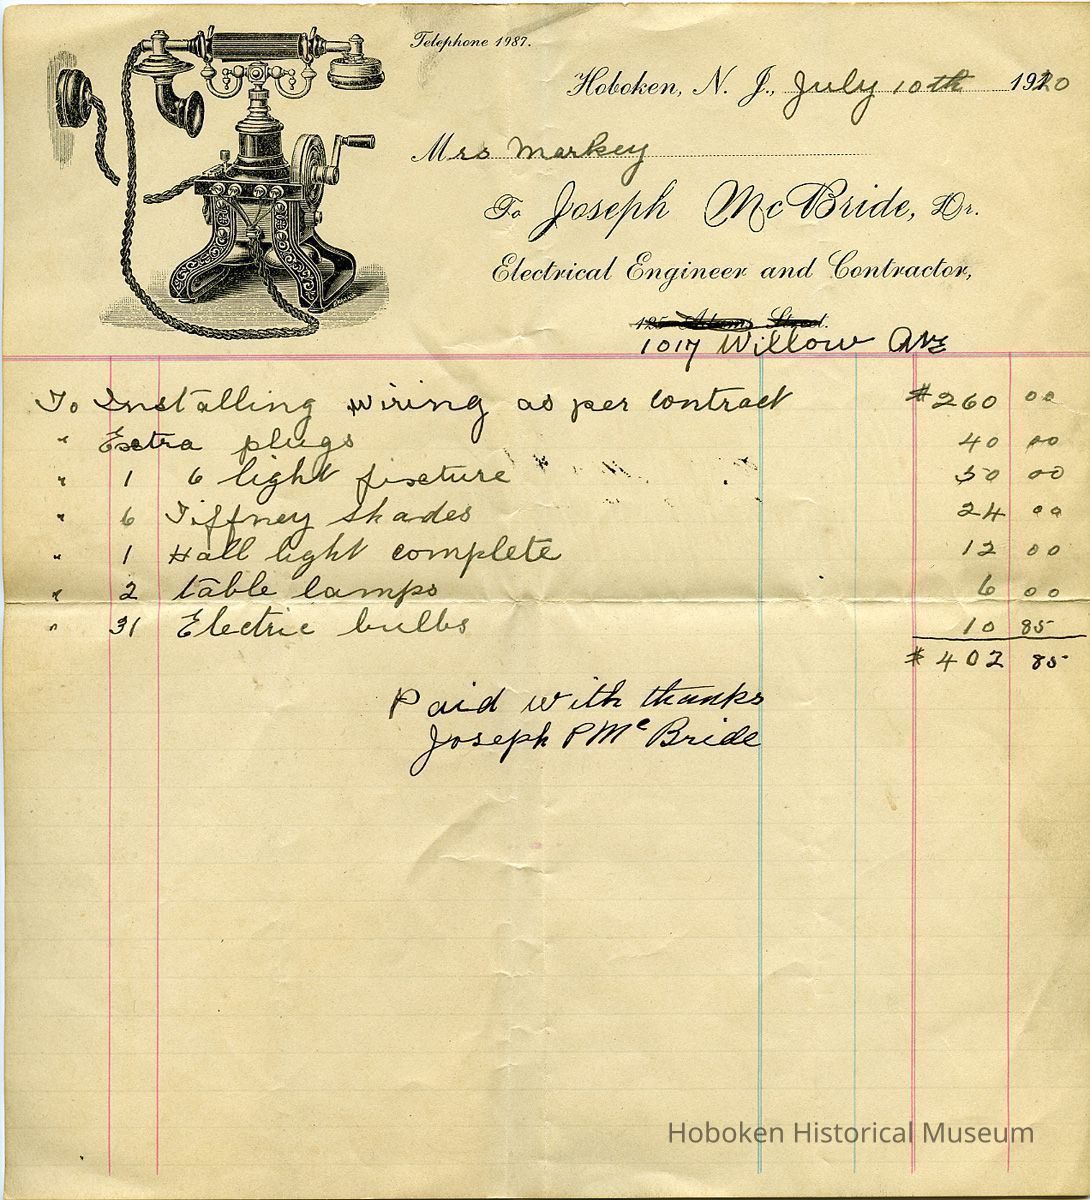 Telephone 1987.
Hoboken, N. J., July 10th 1920
Mrs Markey
To Joseph McBride, Dr.
Electrical Engineer and Contractor,
125 Adams Street.
1017 Willow Ave
To Installing wiring as per contract $260 00
" Extra plugs 40 00
" 1 6 light fixture 50 00
" 6 Tiffney shades 24 00
" 1 Hall light complete 12 00
" 2 table lamps 6 00
" 31 Electric bulbs 10 85
$402 85
Paid with thanks
Joseph P McBride
Hoboken Historical Museum